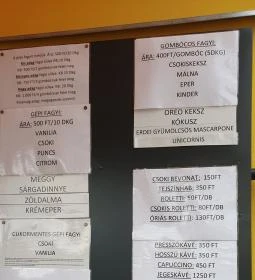 GÉPI FAGYI:
ÁRA: 500 FT/10 DKG
VANILIA
CSOKI
PUNCS
CITROM
MEGGY
SÁRGADINNYE
ZÖLDALMA
KRÉMEPER
CUKORMENTES GÉPI FAGYI:
CSOKI
VANILIA
GOMBÓCOS FAGYI:
ÁRA: 400FT/GOMBÓC (5DKG)
CSOKISKEKSZ
MÁLNA
EPER
KINDER
OREO KEKSZ
KÓKUSZ
ERDEI GYÜMÖLCSÖS MASCARPONE
UNICORNIS
CSOKI BEVONAT: 150FT
TEJSZÍNHAB: 350 FT
ROLETTI: 50FT/DB
CSOKIS ROLETTI: 80FT/DB
ÓRIÁS ROLETTI: 130FT/DB
PRESSZÓKÁVÉ: 350 FT
HOSSZÚ KÁVÉ: 350 FT
CAPUCCINO: 450 FT
JEGESKÁVÉ: 1250 FT